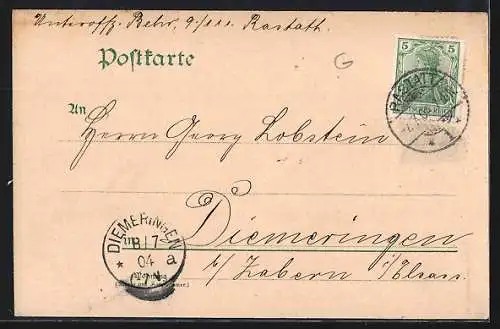 Unteroff. Behr, 9./111. Rastatt.
Postkarte
G
5 5
RASTATT
An
Herrn Georg Lobstein
in
Diemeringen
DIEMERINGEN
8/7
04 a
b/ Zabern i/Elsass.